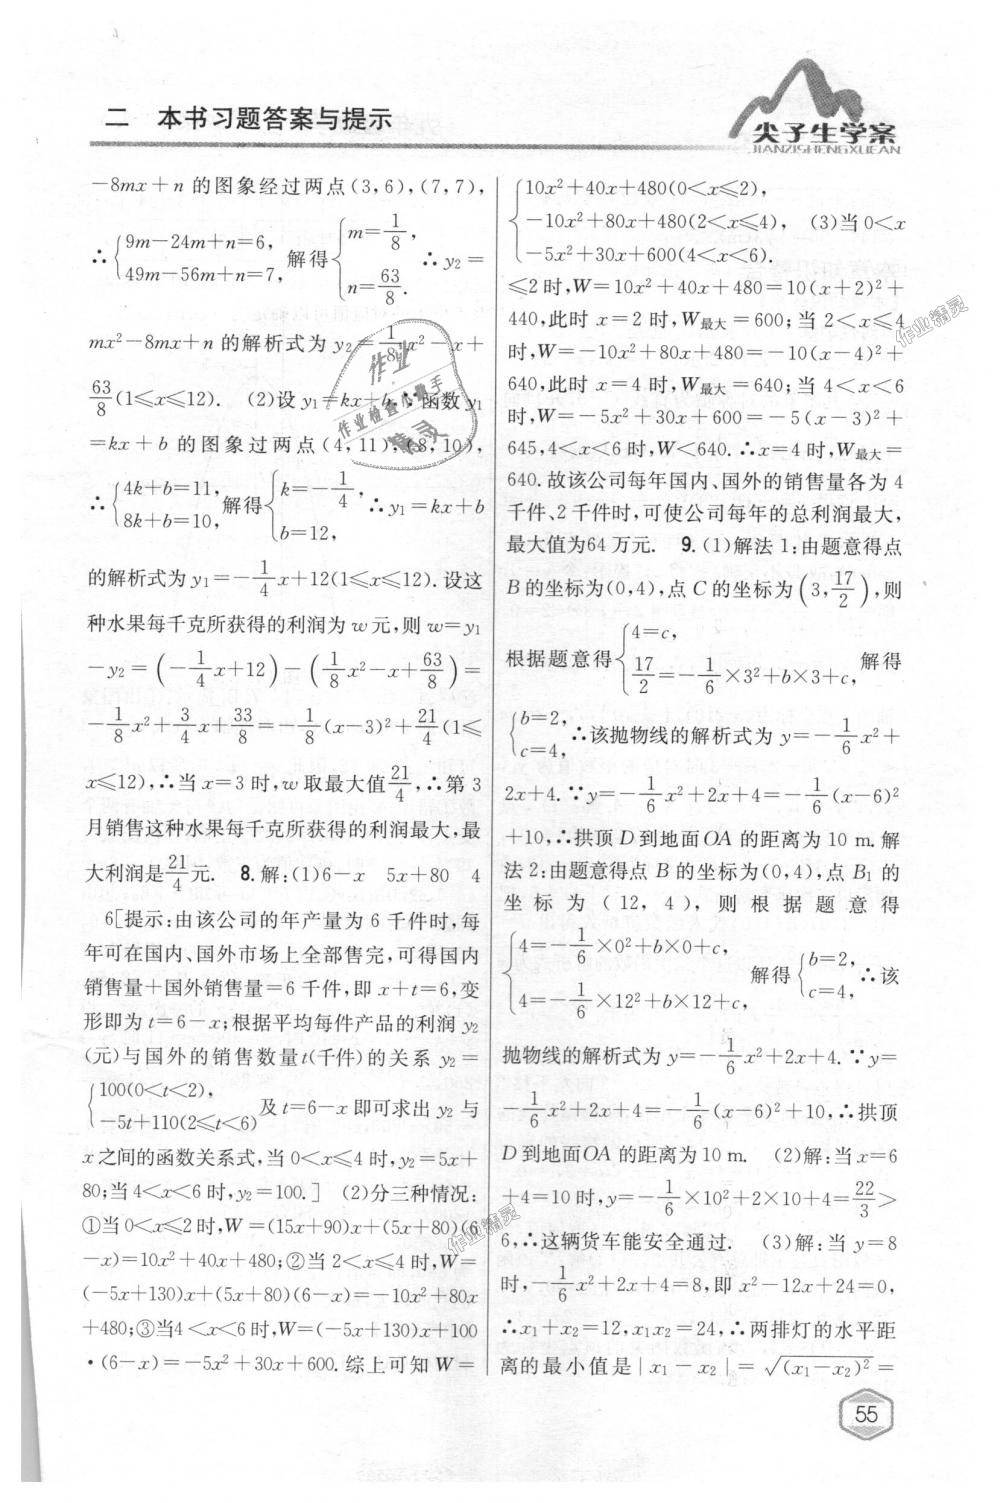 二 本书习题答案与提示
尖子生学案
JIANZISHENGXUEAN
-8mx+n 的图象经过两点(3,6),(7,7),
∴{9m-24m+n=6, 49m-56m+n=7, 解得{m=1/8, n=63/8. ∴y₂=
mx²-8mx+n 的解析式为 y₂=1/8x²-x+
63/8(1≤x≤12). (2)设 y₁=kx+b,∵函数 y₁
=kx+b 的图象过两点(4,11),(8,10),
∴{4k+b=11, 8k+b=10, 解得{k=-1/4, b=12, ∴y₁=kx+b
的解析式为 y₁=-1/4x+12(1≤x≤12).设这
种水果每千克所获得的利润为 w 元,则 w=y₁
-y₂=(-1/4x+12)-(1/8x²-x+63/8)=
-1/8x²+3/4x+33/8=-1/8(x-3)²+21/4(1≤
x≤12),∴当 x=3 时,w 取最大值21/4,∴第 3
月销售这种水果每千克所获得的利润最大,最
大利润是21/4元. 8.解:(1)6-x 5x+80 4
6[提示:由该公司的年产量为 6 千件时,每
年可在国内、国外市场上全部售完,可得国内
销售量+国外销售量=6 千件,即 x+t=6,变
形即为 t=6-x;根据平均每件产品的利润 y₂
(元)与国外的销售数量 t(千件)的关系 y₂=
{100(0<t<2), -5t+110(2≤t<6) 及t=6-x 即可求出 y₂ 与
x 之间的函数关系式,当 0<x≤4 时,y₂=5x+
80;当 4<x<6 时,y₂=100.] (2)分三种情况:
①当 0<x≤2 时,W=(15x+90)x+(5x+80)(6
-x)=10x²+40x+480;②当 2<x≤4 时,W=
(-5x+130)x+(5x+80)(6-x)=-10x²+80x
+480;③当4<x<6 时,W=(-5x+130)x+100
·(6-x)=-5x²+30x+600.综上可知 W=
{10x²+40x+480(0<x≤2), -10x²+80x+480(2<x≤4), -5x²+30x+600(4<x<6). (3)当 0<x
≤2 时,W=10x²+40x+480=10(x+2)²+
440,此时 x=2 时,W最大=600;当 2<x≤4
时,W=-10x²+80x+480=-10(x-4)²+
640,此时 x=4 时,W最大=640;当 4<x<6
时,W=-5x²+30x+600=-5(x-3)²+
645,4<x<6 时,W<640.∴x=4 时,W最大=
640.故该公司每年国内、国外的销售量各为 4
千件、2 千件时,可使公司每年的总利润最大,
最大值为64 万元. 9.(1)解法 1:由题意得点
B 的坐标为(0,4),点 C 的坐标为(3,17/2),则
根据题意得{4=c, 17/2=-1/6×3²+b×3+c, 解得
{b=2, c=4, ∴该抛物线的解析式为 y=-1/6x²+
2x+4.∵y=-1/6x²+2x+4=-1/6(x-6)²
+10,∴拱顶 D 到地面 OA 的距离为 10 m.解
法 2:由题意得点 B 的坐标为(0,4),点 B₁ 的
坐标为(12,4),则根据题意得
{4=-1/6×0²+b×0+c, 4=-1/6×12²+b×12+c, 解得{b=2, c=4, ∴该
抛物线的解析式为 y=-1/6x²+2x+4.∵y=
-1/6x²+2x+4=-1/6(x-6)²+10,∴拱顶
D 到地面OA 的距离为 10 m. (2)解:当 x=6
+4=10 时,y=-1/6×10²+2×10+4=22/3>
6,∴这辆货车能安全通过. (3)解:当 y=8
时,-1/6x²+2x+4=8,即 x²-12x+24=0,
∴x₁+x₂=12,x₁x₂=24,∴两排灯的水平距
离的最小值是|x₁-x₂|=√(x₁-x₂)²=
作业
作业检查小帮手
精灵
作业精灵
作业精灵
55